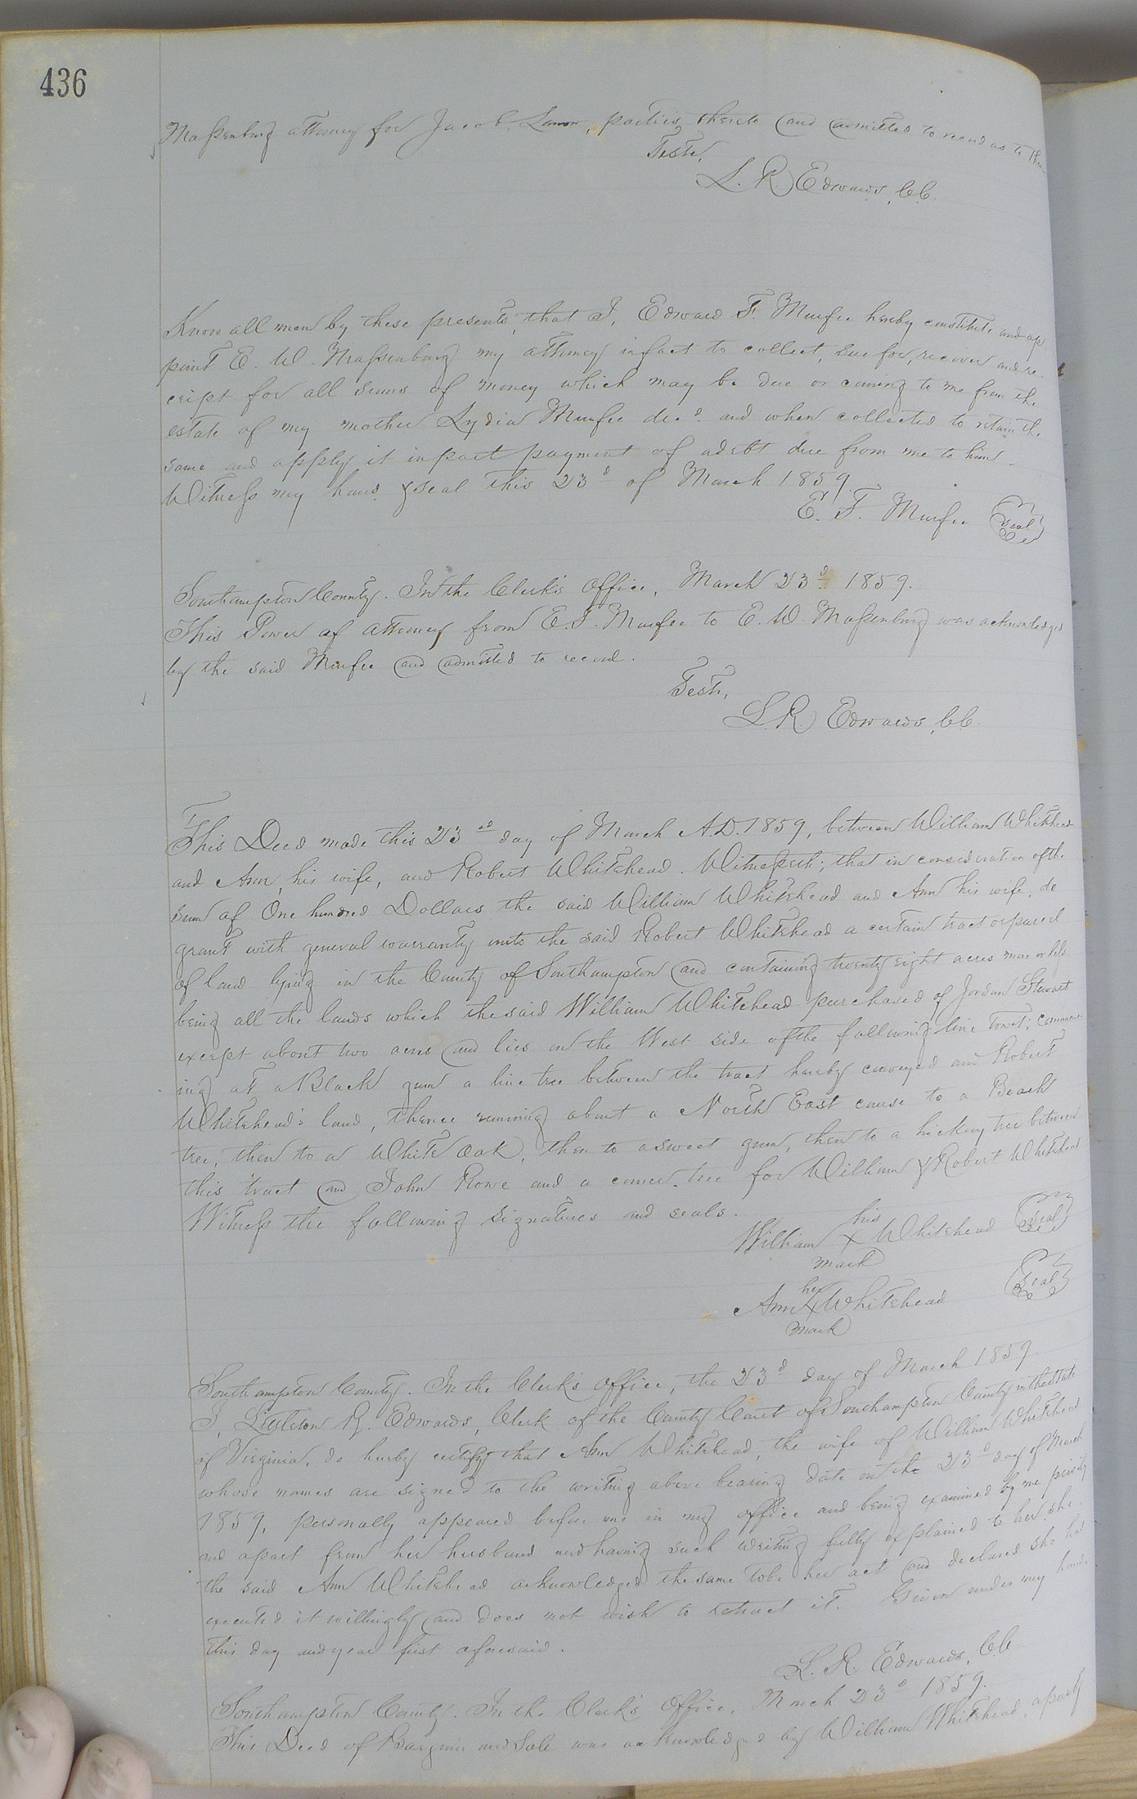 436
Massenburg attorney for Jacob parties thereto and admitted to record as to
Teste,
L. R. Edwards, C.C.
Know all men by these presents, that I, Edward F. Murfee hereby constitute and ap
point E. W. Massenburg my attorney in fact to collect, sue for, recover and re
ceipt for all sums of money which may be due or coming to me from the
estate of my mother Lydia Murfee decd. and when collected to retain the
same and apply it in part payment of a debt due from me to him.
Witness my hand & seal this 23d of March 1859
E. F. Murfee Seal
Southampton County. In the Clerk's Office, March 23d 1859.
This Power of attorney from E. F. Murfee to E. W. Massenburg was acknowledged
by the said Murfee and admitted to record.
Teste,
L. R. Edwards, C.C.
This Deed made this 23rd day of March A.D. 1859, between William Whitehead
and Ann, his wife, and Robert Whitehead. Witnesseth; that in consideration of the
sum of One hundred Dollars the said William Whitehead and Ann his wife, do
grant with general warranty unto the said Robert Whitehead a certain tract or parcel
of land lying in the County of Southampton and containing twenty eight acres more or less
being all the lands which the said William Whitehead purchased of Jordan Stewart
except about two acres and lies on the West side of the following line Towit; commenc
ing at a Black gum a line tree between the tract hereby conveyed and Robert
Whitehead's land, thence running about a North East course to a Beach
tree, then to a White oak, then to a sweet gum, then to a hickory tree between
this tract and John Rowe and a corner tree for William & Robert Whitehead
Witness the following signatures and seals.
his
William X Whitehead Seal
mark
her
Ann X Whitehead Seal
mark
Southampton County. In the Clerk's office, the 23d day of March 1859.
I, Littleton R. Edwards, Clerk of the County Court of Southampton County in the State
of Virginia, do hereby certify that Ann Whitehead, the wife of William Whitehead
whose names are signed to the writing above bearing date on the 23d day of March
1859, personally appeared before me in my office and being examined by me privily
and apart from her husband and having such writing fully explained to her, she
the said Ann Whitehead acknowledged the same to be her act and declared she had
executed it willingly and does not wish to retract it. Given under my hand
this day and year first aforesaid.
L. R. Edwards, C.C.
Southampton County. In the Clerk's Office, March 23d 1859.
This Deed of Bargain and Sale was acknowledged by William Whitehead, a party